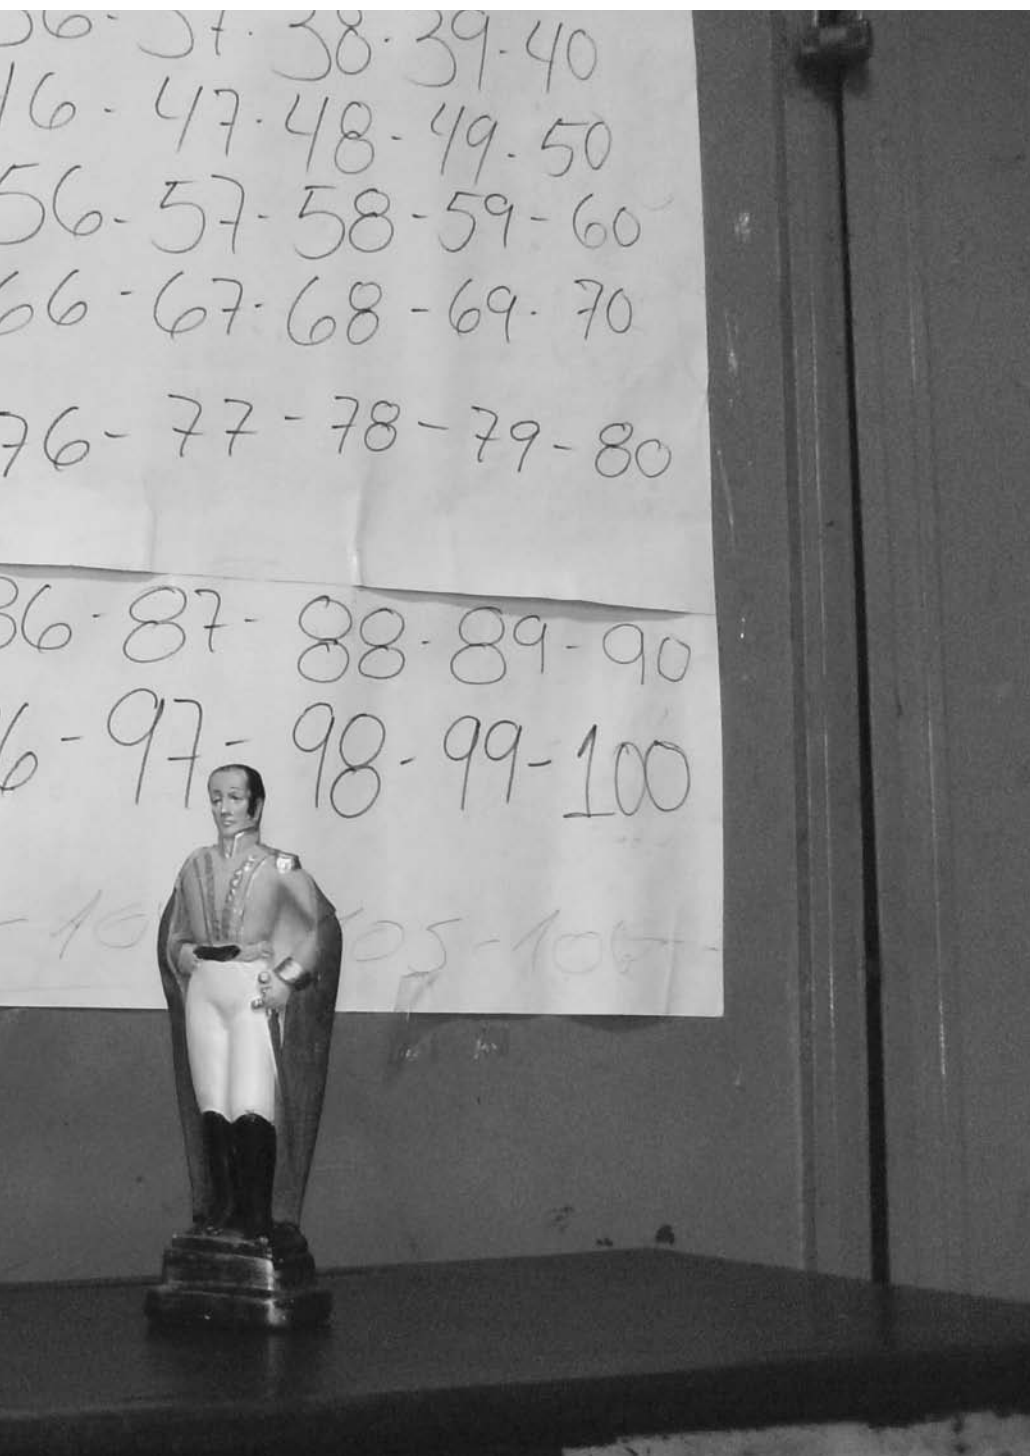 36-37.38.39.40
46-47.48-49.50
56-57-58-59-60
66-67.68-69.70
76-77-78-79-80
86-87-88-89-90
6-97-98-99-100
-10 05-106-